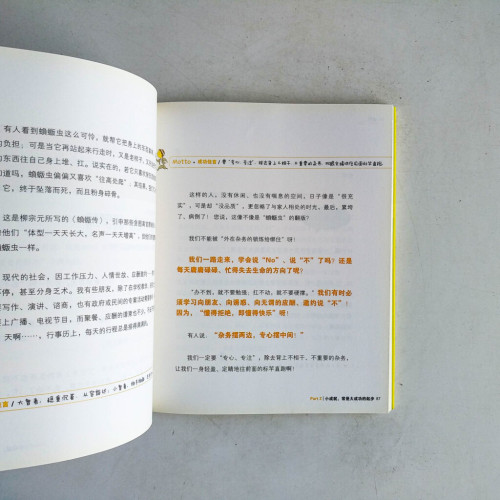 有人看到蝜蝂虫这么可怜，就帮它把身上的
的负担；可是当它再站起来行走时，又是老样子，又
的东西往自己身上堆、扛。说实在的，若它只
知道吗，蝜蝂虫偏偏又喜欢“往高处爬”
了，终于坠落而死，而且粉身碎骨。
这是柳宗元所写的《蝜蝂传》，引申那些贪
他们“体型一天天长大，名声一天天增高
蝜蝂虫一样。
现代的社会，因工作压力、人情世故、应酬
不停，甚至分身乏术。我有些朋友，除了在学校
要写作、演讲、谘商，也有政府或民间的专案
上广播、电视节目，而聚餐、应酬的
天啊……。行事历上，每天的行程总是
Motto
这样的人，没有休闲，也没有喘息的空间，日子像是“很充
实”，可是却“没品质”，更忽略了与家人相处的时光。最后，累垮
了，病倒了！您说，这像不像是“蝜蝂虫”的翻版？
我们不能被“外在杂务的锁练给绑住”呀！
我们一路走来，学会说“No”、说“不”了吗？还是
每天庸庸碌碌、忙得失去生命的方向了呢？
“办不到，就不要勉强；扛不动，就不要硬撑。”我们有时必
须学习向朋友、向诱惑、向无谓的应酬、邀约说“不”！
因为，“懂得拒绝，即懂得快乐”呀！
有人说，“杂务摆两边，专心摆中间！”
我们一定要“专心、专注”，除去背上不相干、不重要的杂务，
让我们一身轻盈、定睛地往前面的标竿直跑啊！
Part 2 小成就，常是大成功的起步 57